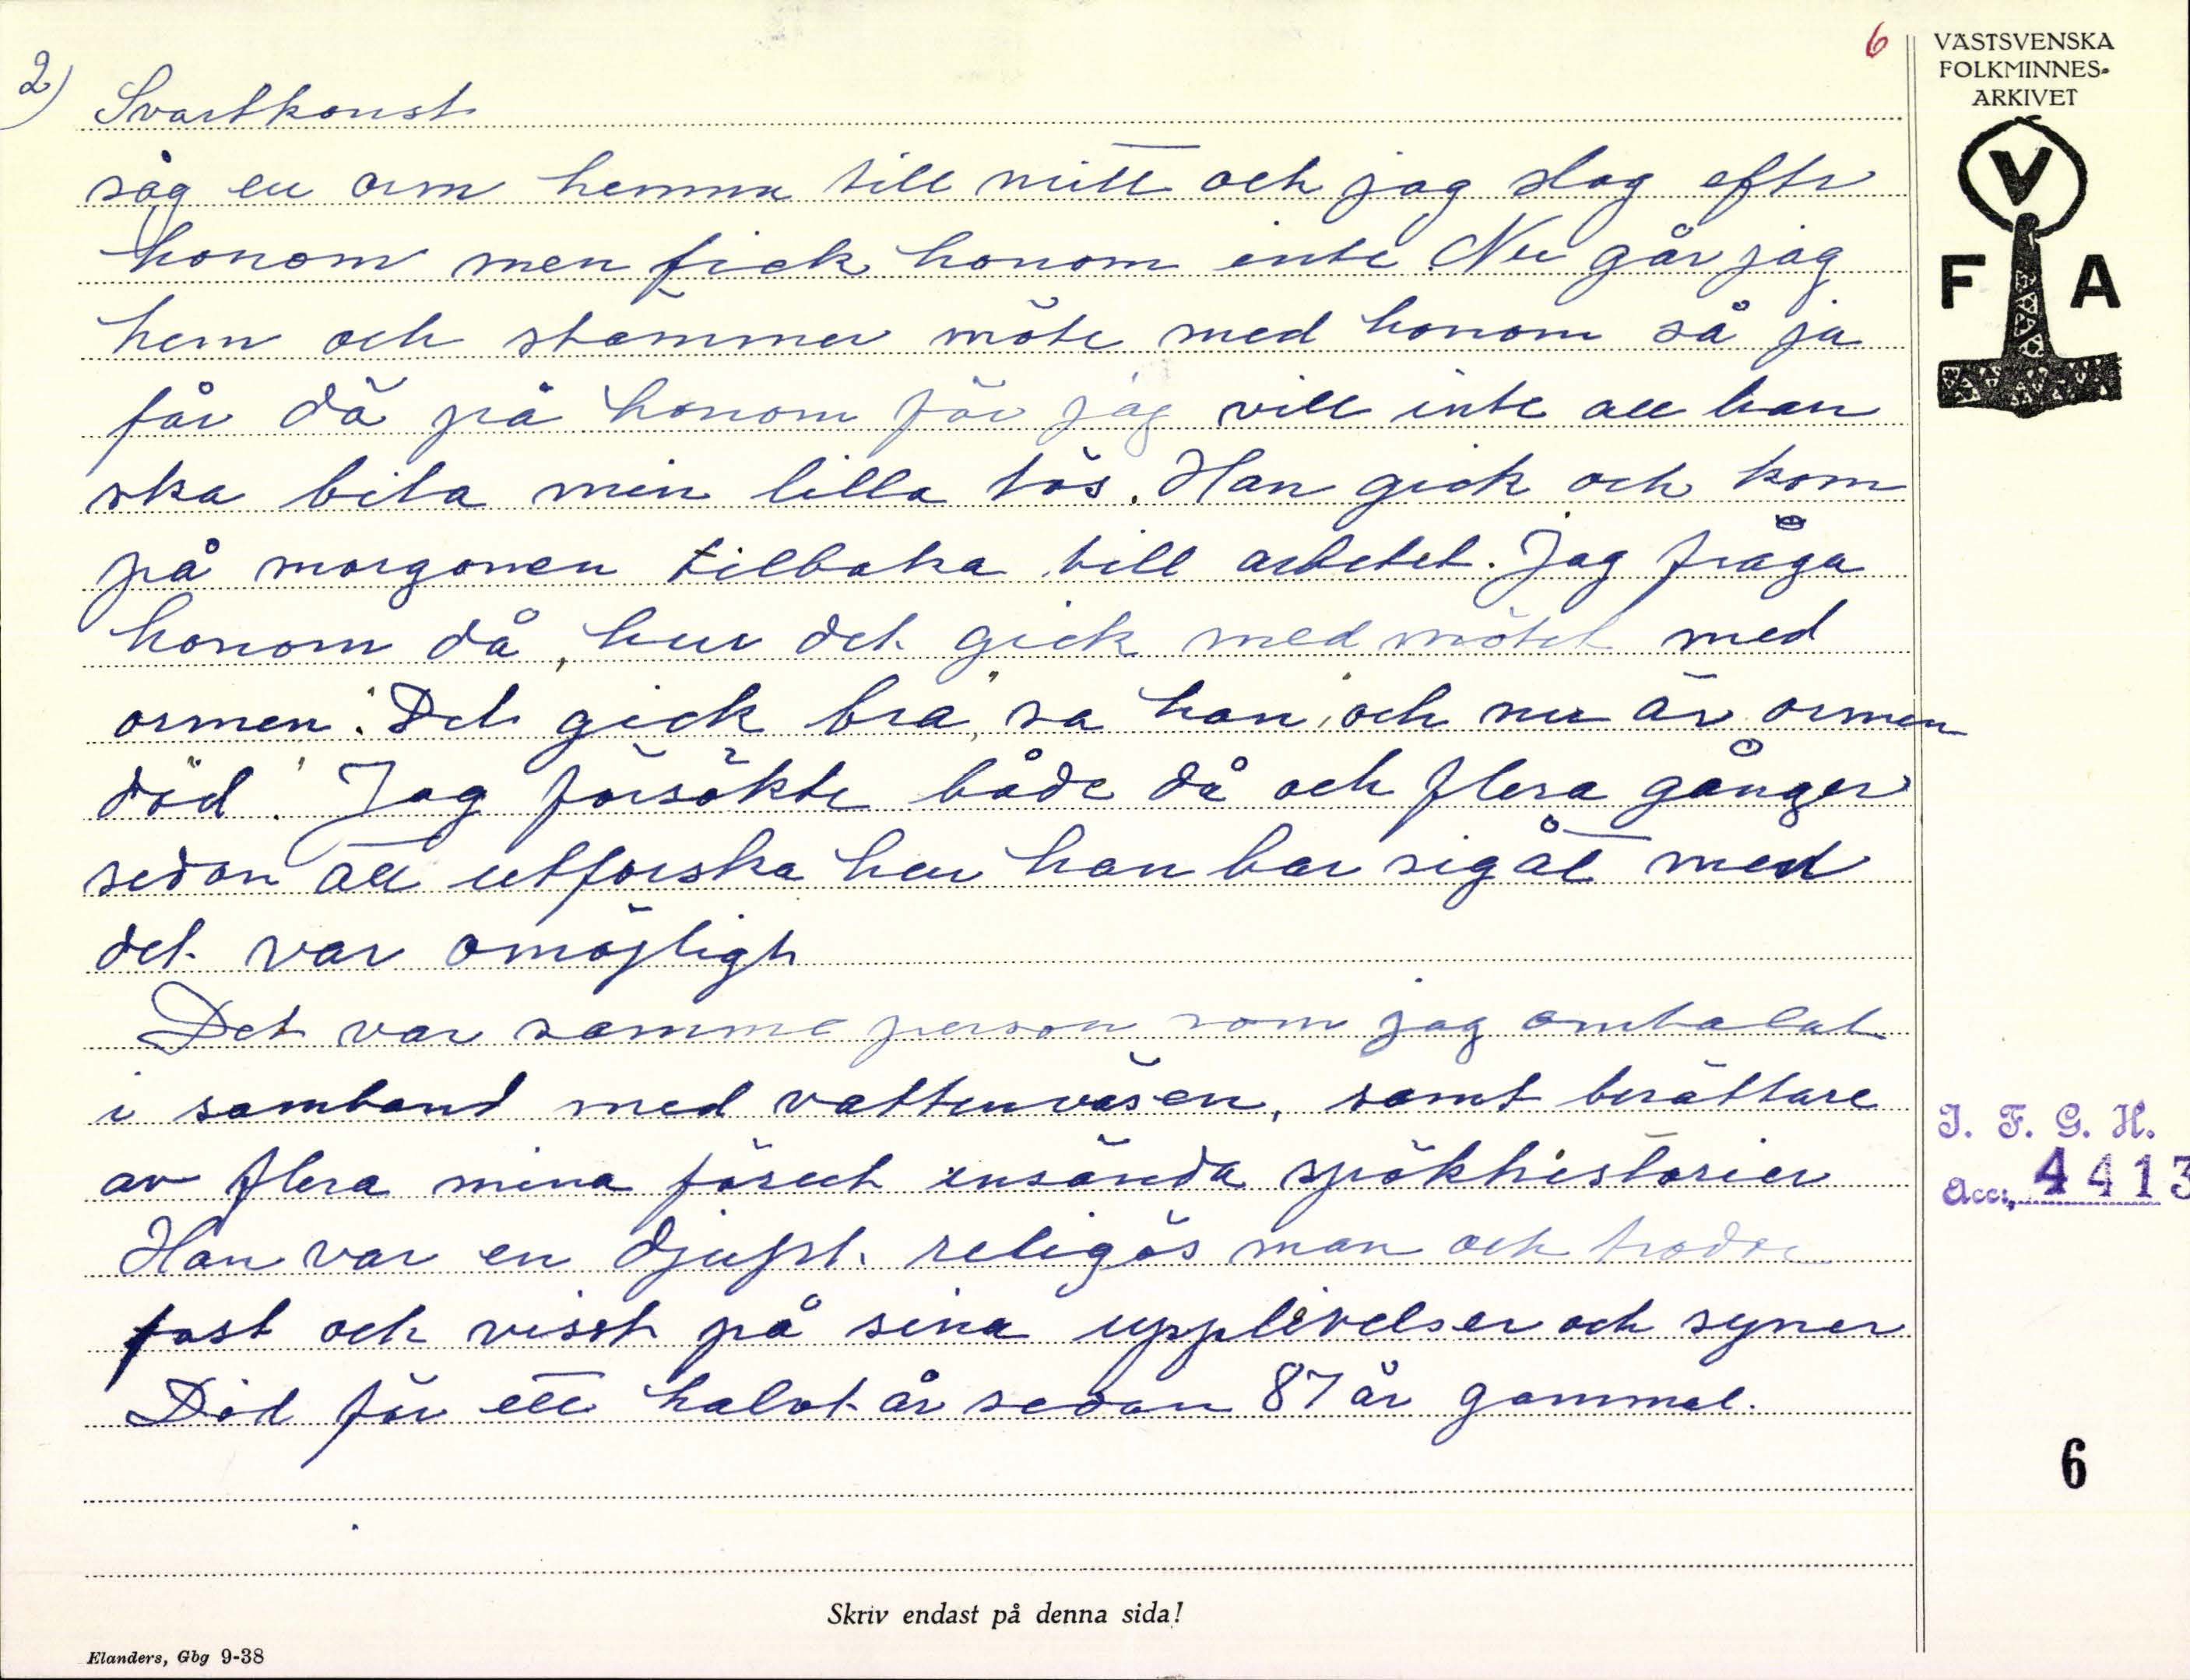 6
VÄSTSVENSKA
FOLKMINNES-
ARKIVET
V
F A
2) Svartkonst
såg en orm hemma till mitt och jag slog efter
honom men fick honom inte. Nu går jag
hem och stämmer möte med honom så ja
får dö på honom för jag vill inte att han
ska bita min lilla tös. Han gick och kom
på morgonen tilbaka till arbetet. Jag fråga
honom då, hur det gick med mötet med
ormen. "Det gick bra," sa han, "och nu är ormen
död". Jag försökte både då och flera gånger
sedan att utforska hur han bar sig åt men
det var omöjligt
Det var samme person som jag omtalat
i samband med vattenväsen, samt berättare
av flera mina förut insända spökhistorier
Han var en djupt religös man och trodde
fast och visst på sina upplevelser och syner
Död för ett halvt år sedan 87 år gammal.
I. F. G. H.
Acc. 4413
6
Skriv endast på denna sida!
Elanders, Gbg 9-38